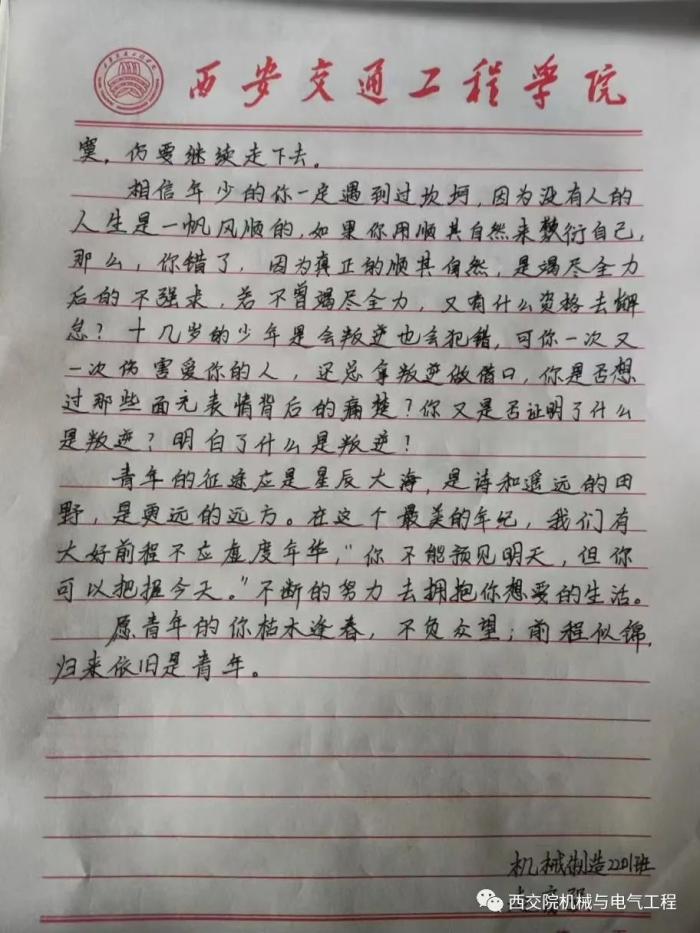 西安交通工程学院
寞，仍要继续走下去。
相信年少的你一定遇到过坎坷，因为没有人的
人生是一帆风顺的，如果你用顺其自然来敷衍自己，
那么，你错了，因为真正的顺其自然，是竭尽全力
后的不强求，若不曾竭尽全力，又有什么资格去懈
怠？十几岁的少年是会叛逆也会犯错，可你一次又
一次伤害爱你的人，还总拿叛逆做借口，你是否想
过那些面无表情背后的痛楚？你又是否证明了什么
是叛逆？明白了什么是叛逆！
青年的征途应是星辰大海，是诗和遥远的田
野，是更远的远方。在这个最美的年纪，我们有
大好前程不应虚度年华，“你不能预见明天，但你
可以把握今天。”不断的努力去拥抱你想要的生活。
愿青年的你枯木逢春，不负众望；前程似锦，
归来依旧是青年。
机械制造2201班
西交院机械与电气工程